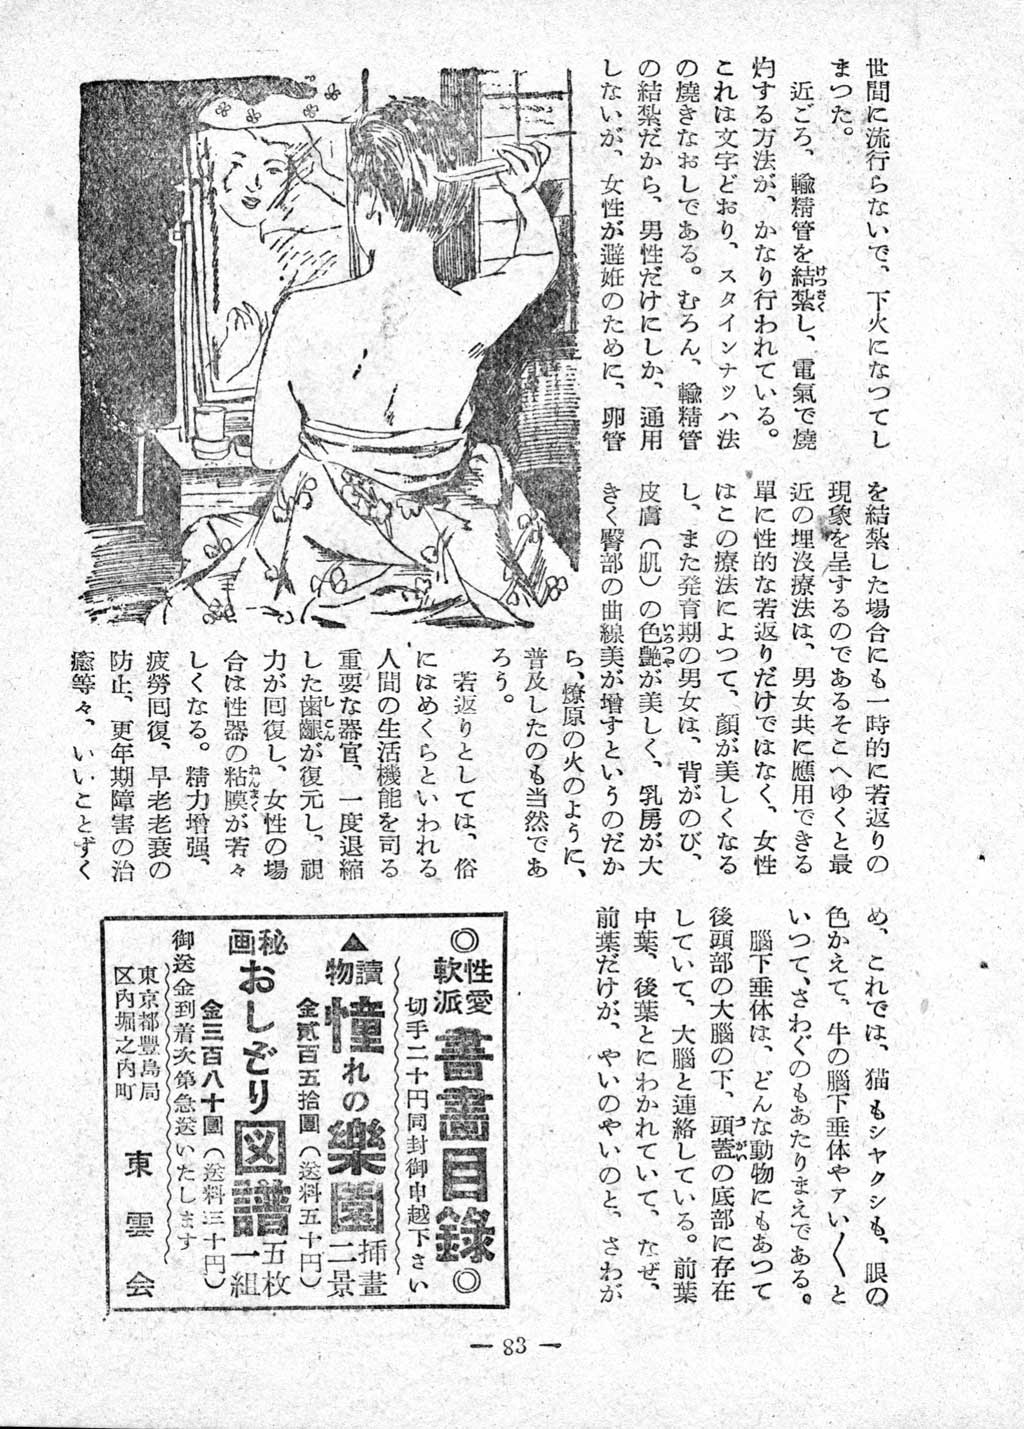 世間に流行らないで、下火になつてし
まつた。
近ごろ、輸精管を結紮し、電氣で燒
灼する方法が、かなり行われている。
これは文字どおり、スタインナッハ法
の燒きなおしである。むろん、輸精管
の結紮だから、男性だけにしか、通用
しないが、女性が避妊のために、卵管
を結紮した場合にも一時的に若返りの
現象を呈するのであるそこへゆくと最
近の埋沒療法は、男女共に應用できる
單に性的な若返りだけではなく、女性
はこの療法によつて、顏が美しくなる
し、また発育期の男女は、背がのび、
皮膚(肌)の色艶が美しく、乳房が大
きく臀部の曲線美が增すというのだか
ら、燎原の火のように、
普及したのも当然であ
ろう。
若返りとしては、俗
にはめくらといわれる
人間の生活機能を司る
重要な器官、一度退縮
した歯齦が復元し、視
力が回復し、女性の場
合は性器の粘膜が若々
しくなる。精力增强、
疲勞回復、早老老衰の
防止、更年期障害の治
癒等々、いいことずく
め、これでは、猫もシヤクシも、眼の
色かえて、牛の腦下垂体やァい〱と
いつて、さわぐのもあたりまえである。
腦下垂体は、どんな動物にもあつて
後頭部の大腦の下、頭蓋の底部に存在
していて、大腦と連絡している。前葉
中葉、後葉とにわかれていて、なぜ、
前葉だけが、やいのやいのと、さわが
◎性愛軟派書畫目錄◎
切手二十円同封御申越下さい
▲讀物憧れの樂園挿畫二景
金貳百五拾圓(送料五十円)
秘画おしどり図譜五枚一組
金三百八十圓(送料三十円)
御送金到着次第急送いたします
東京都豐島局
区内堀之内町
東雲会
— 83 —